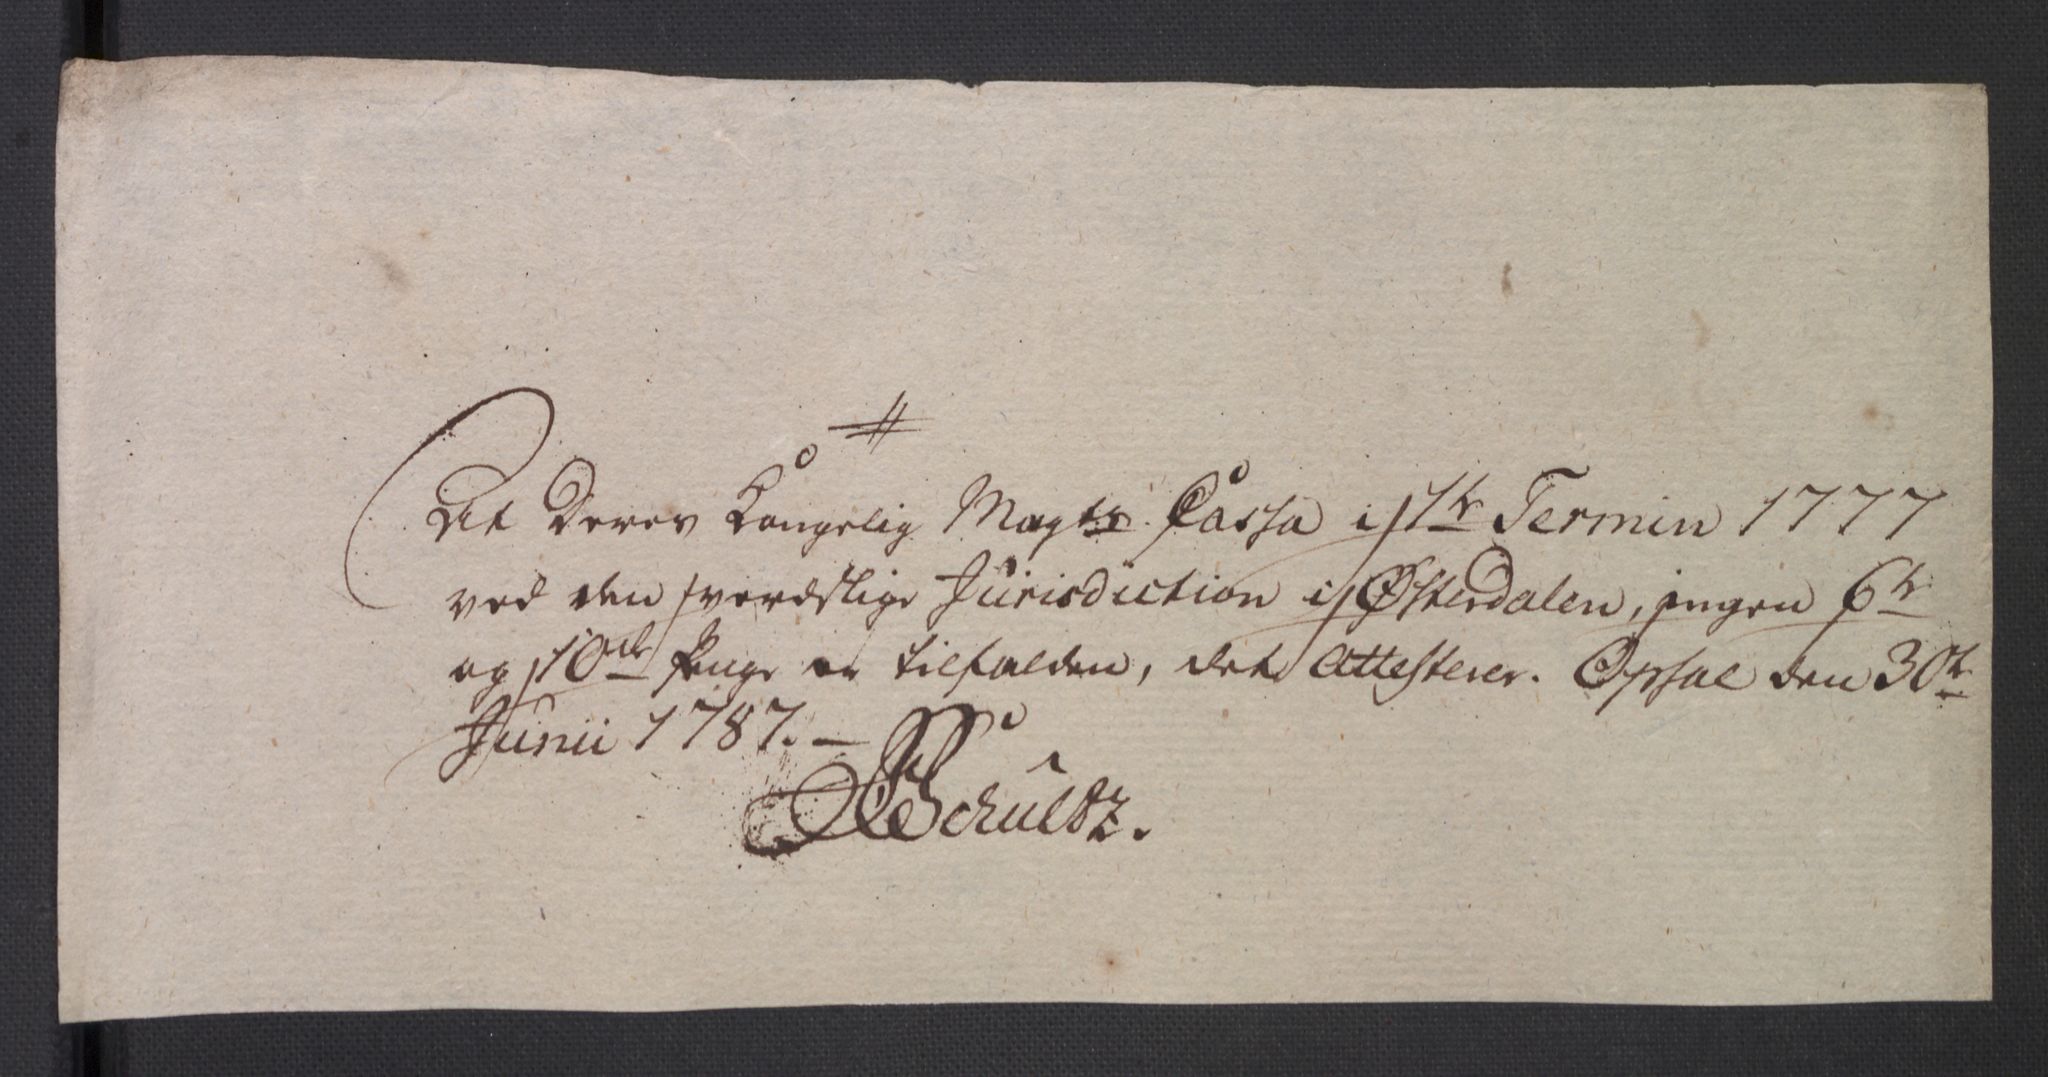 #
At Deres Kongelig Mayts Cassa i 1te Termin 1777
ved den Jurisdiction i Østerdalen, ingen 6te
og 10de Penge er tilfalden, det Attesterer. Opsal den 30te
Junii 1787. —
Schultz.